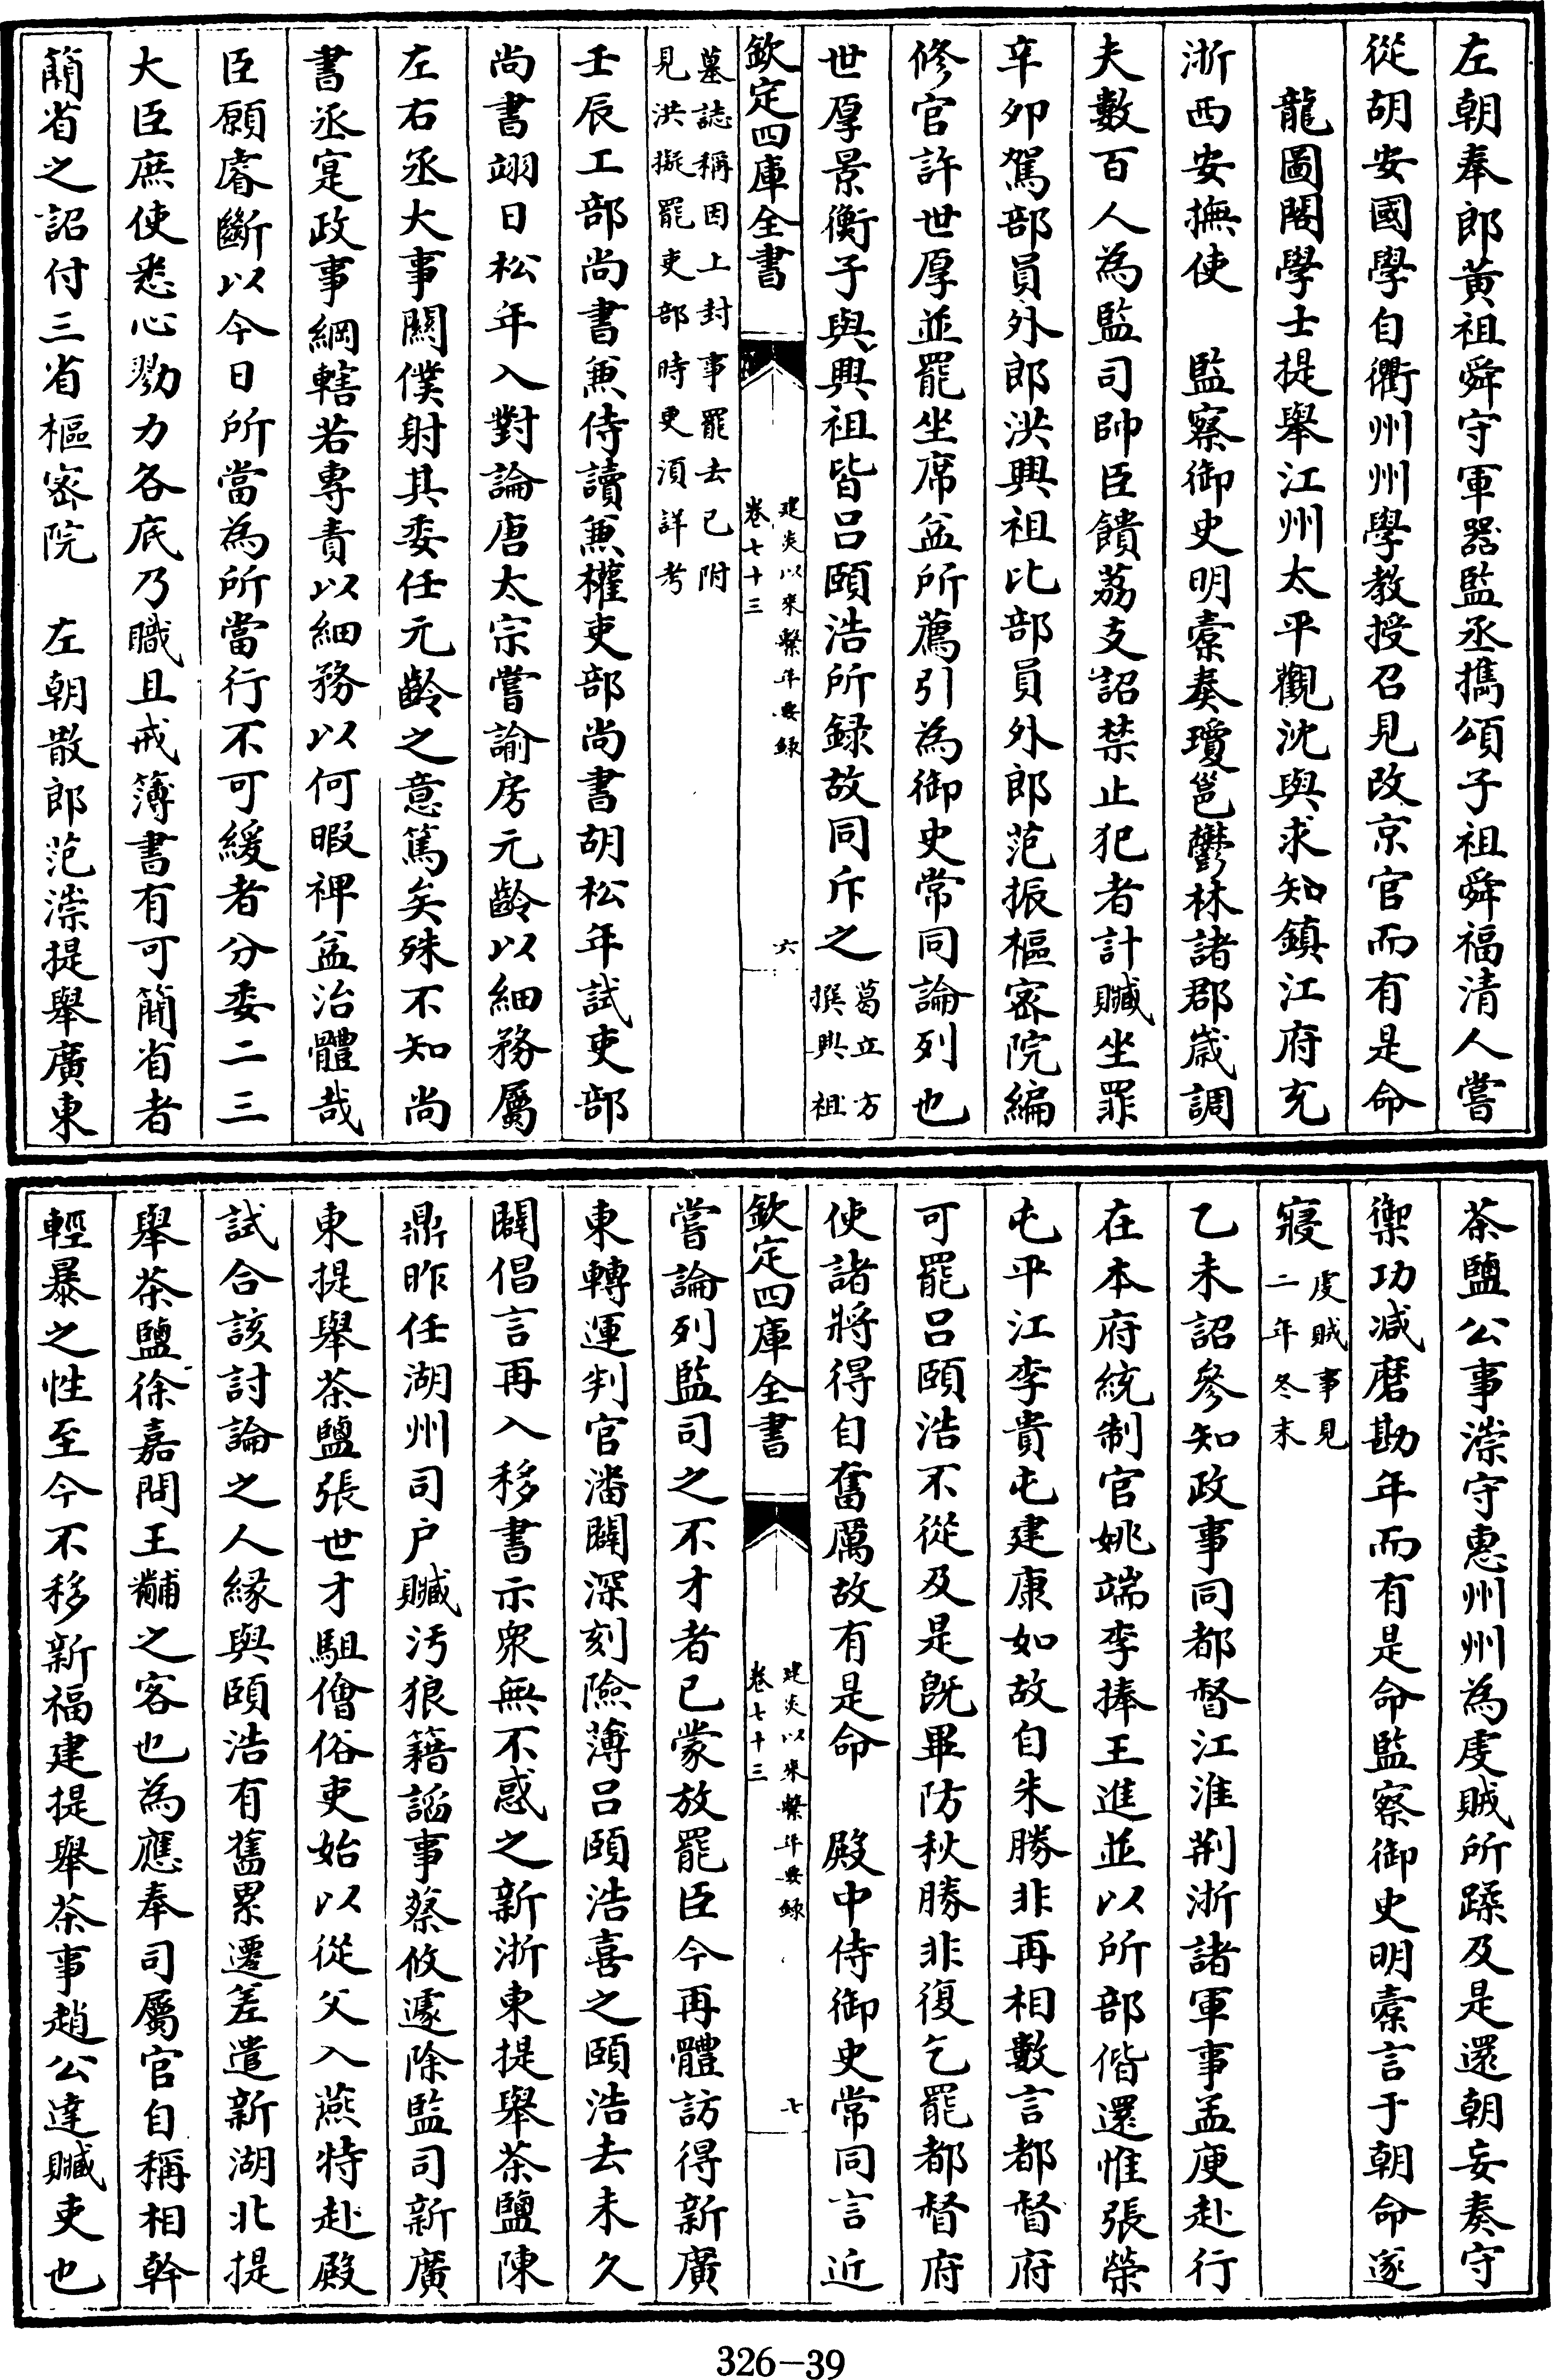 左朝奉郎黄祖舜守軍器監丞攜頌子祖舜福清人嘗
從胡安國學自衢州州學教授召見改京官而有是命
龍圖閣學士提舉江州太平觀沈與求知鎮江府充
浙西安撫使　監察御史明橐奏瓊邕鬱林諸郡歳調
夫數百人為監司帥臣饋荔支詔禁止犯者計贓坐罪
辛卯駕部員外郎洪興祖比部員外郎范振樞宻院編
修官許世厚並罷坐席益所薦引為御史常同論列也
世厚景衡子與興祖皆呂頤浩所録故同斥之葛立方撰興祖
欽定四庫全書
建炎以來繫年要録
卷七十三
六
墓誌稱因上封事罷去已附
見洪擬罷吏部時更須詳考
壬辰工部尚書兼侍讀兼權吏部尚書胡松年試吏部
尚書翊日松年入對論唐太宗嘗諭房元齡以細務屬
左右丞大事關僕射其委任元齡之意篤矣殊不知尚
書丞寔政事綱轄若專責以細務以何暇禆益治體哉
臣願睿斷以今日所當為所當行不可緩者分委二三
大臣庶使悉心勠力各底乃職且戒簿書有可簡省者
簡省之詔付三省樞宻院　左朝散郎范漴提舉廣東
茶鹽公事漴守惠州州為虔賊所蹂及是還朝妄奏守
禦功减磨勘年而有是命監察御史明橐言于朝命遂
寢虔賊事見二年冬末
乙未詔參知政事同都督江淮荆浙諸軍事孟庾赴行
在本府統制官姚端李捧王進並以所部偕還惟張榮
屯平江李貴屯建康如故自朱勝非再相數言都督府
可罷呂頤浩不從及是旣畢防秋勝非復乞罷都督府
使諸將得自奮厲故有是命　殿中侍御史常同言近
欽定四庫全書
建炎以來繫年要録
卷七十三
七
嘗論列監司之不才者已蒙放罷臣今再體訪得新廣
東轉運判官潘闢深刻險薄呂頤浩喜之頤浩去未久
闢倡言再入移書示衆無不惑之新浙東提舉茶鹽陳
鼎昨任湖州司户贓汚狼籍謟事蔡攸遽除監司新廣
東提舉茶鹽張世才駔儈俗吏始以從父入燕特赴殿
試合該討論之人緣與頤浩有舊累遷差遣新湖北提
舉茶鹽徐嘉問王黼之客也為應奉司屬官自稱相幹
輕暴之性至今不移新福建提舉茶事趙公達贓吏也
326-39